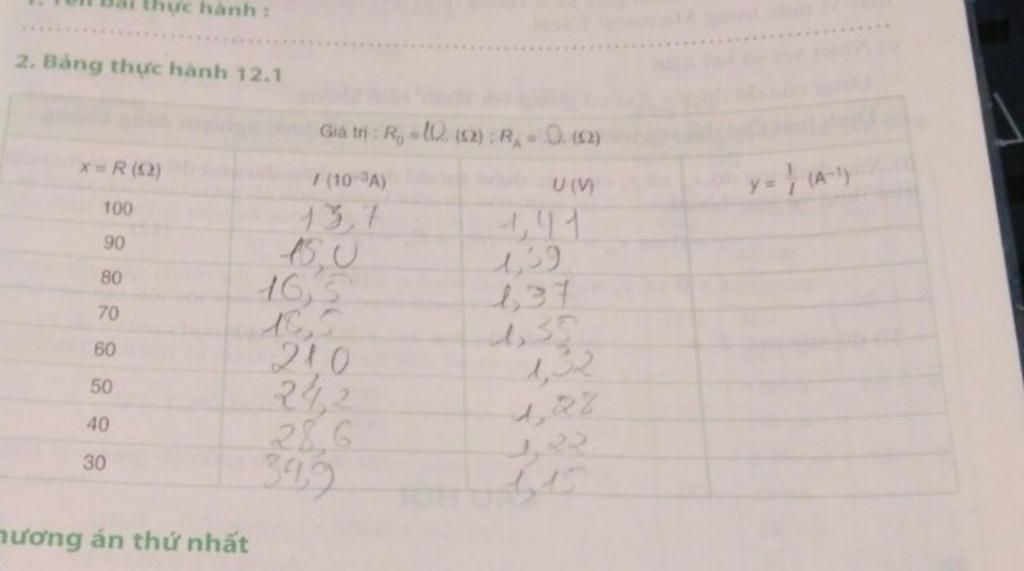 1. Tên bài thực hành :
2. Bảng thực hành 12.1
Giá trị : R₀ = 10 (Ω) ; R_A = 0 (Ω)
x = R (Ω) I (10⁻³A) U (V) y = 1/I (A⁻¹)
100 13,7 1,41
90 15,0 1,39
80 16,5 1,37
70 18,5 1,35
60 21,0 1,32
50 24,2 1,28
40 28,6 1,22
30 34,9 1,15
hương án thứ nhất